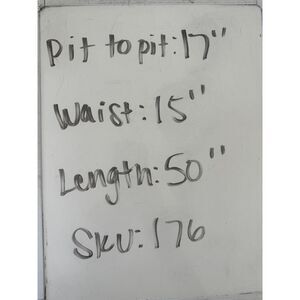 Pit to pit: 17"
Waist: 15"
Length: 50"
SKU: 176